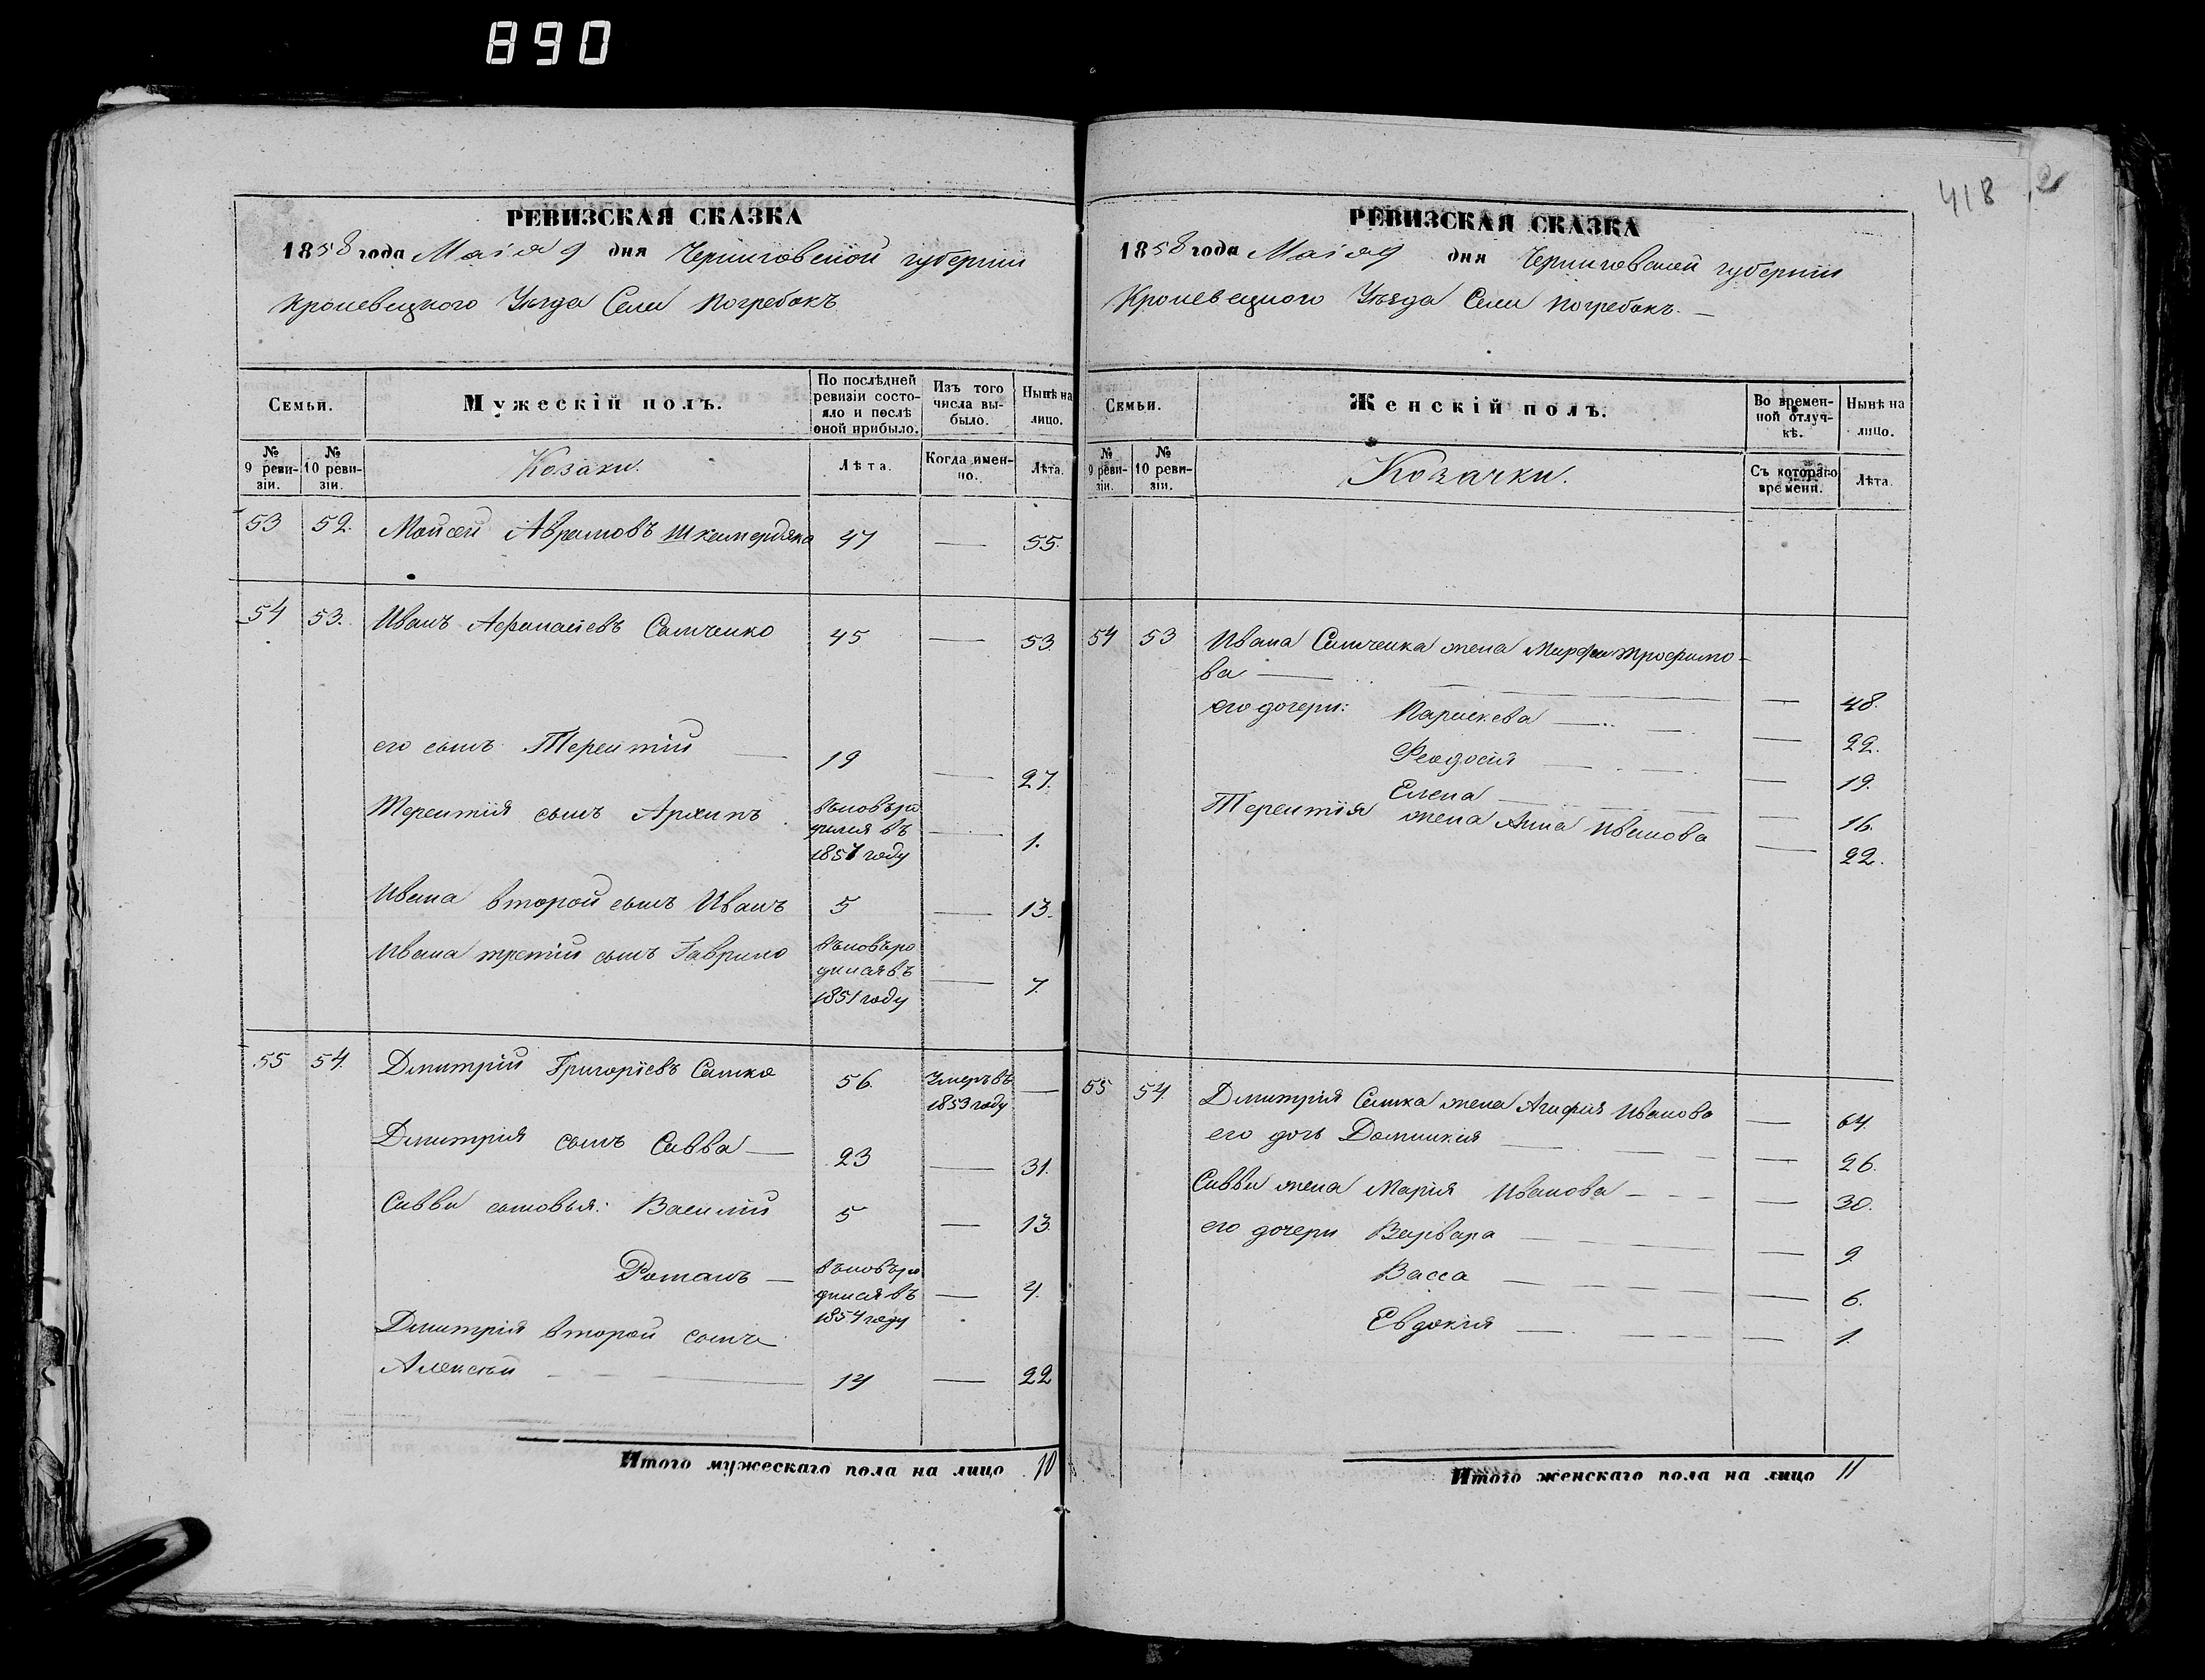 890
418
РЕВИЗСКАЯ СКАЗКА
1858 года Маія 9 дня Черниговской губерніи
Кролевецкого Уѣзда Села Погребокъ
Семьи.
Мужескій полъ.
По послѣдней ревизіи состояло и послѣ оной прибыло.
Изъ того числа выбыло.
Нынѣ на лицо.
№ 9 ревизіи.
№ 10 ревизіи.
Козаки.
Лѣта.
Когда именно.
Лѣта.
53 52. Моисей Аврамовъ 47 — 55.
54 53. Иванъ Афанасіевъ Самченко 45 — 53.
его сынъ Терентій — 19 — 27.
Терентія сынъ Архипъ вновь родился въ 1857 году — 1.
Ивана второй сынъ Иванъ 5 — 13.
Ивана третій сынъ Гаврило вновь родился въ 1851 году — 7.
55 54. Дмитрій Григоріевъ Самко 56. Умеръ въ 1853 году —
Дмитрія сынъ Савва — 23 — 31.
Саввы сыновья: Василій 5 — 13
Романъ — вновь родился въ 1854 году — 4.
Дмитрія второй сынъ
Алексѣй — 14 — 22
Итого мужескаго пола на лицо 10
РЕВИЗСКАЯ СКАЗКА
1858 года Маія 9 дня Черниговской губерніи
Кролевецкого Уѣзда Села Погребокъ. —
Семьи.
Женскій полъ.
Во временной отлучкѣ.
Нынѣ на лицо.
№ 9 ревизіи.
№ 10 ревизіи.
Козачки.
Съ котораго времени.
Лѣта.
54 53 Ивана Самченка жена Марфа Трофимо-
ва — — 48.
его дочери: Параскева — — 22.
Феодосія — — 19.
Елена — — 16.
Терентія жена Анна Иванова — 22.
55 54. Дмитрія Самка жена Агафія Иванова — 64.
его дочь Домникія — — 26.
Саввы жена Марія Иванова — — 30.
его дочери Варвара — — 9.
Васса — — 6.
Евдокія — — 1.
Итого женскаго пола на лицо 11